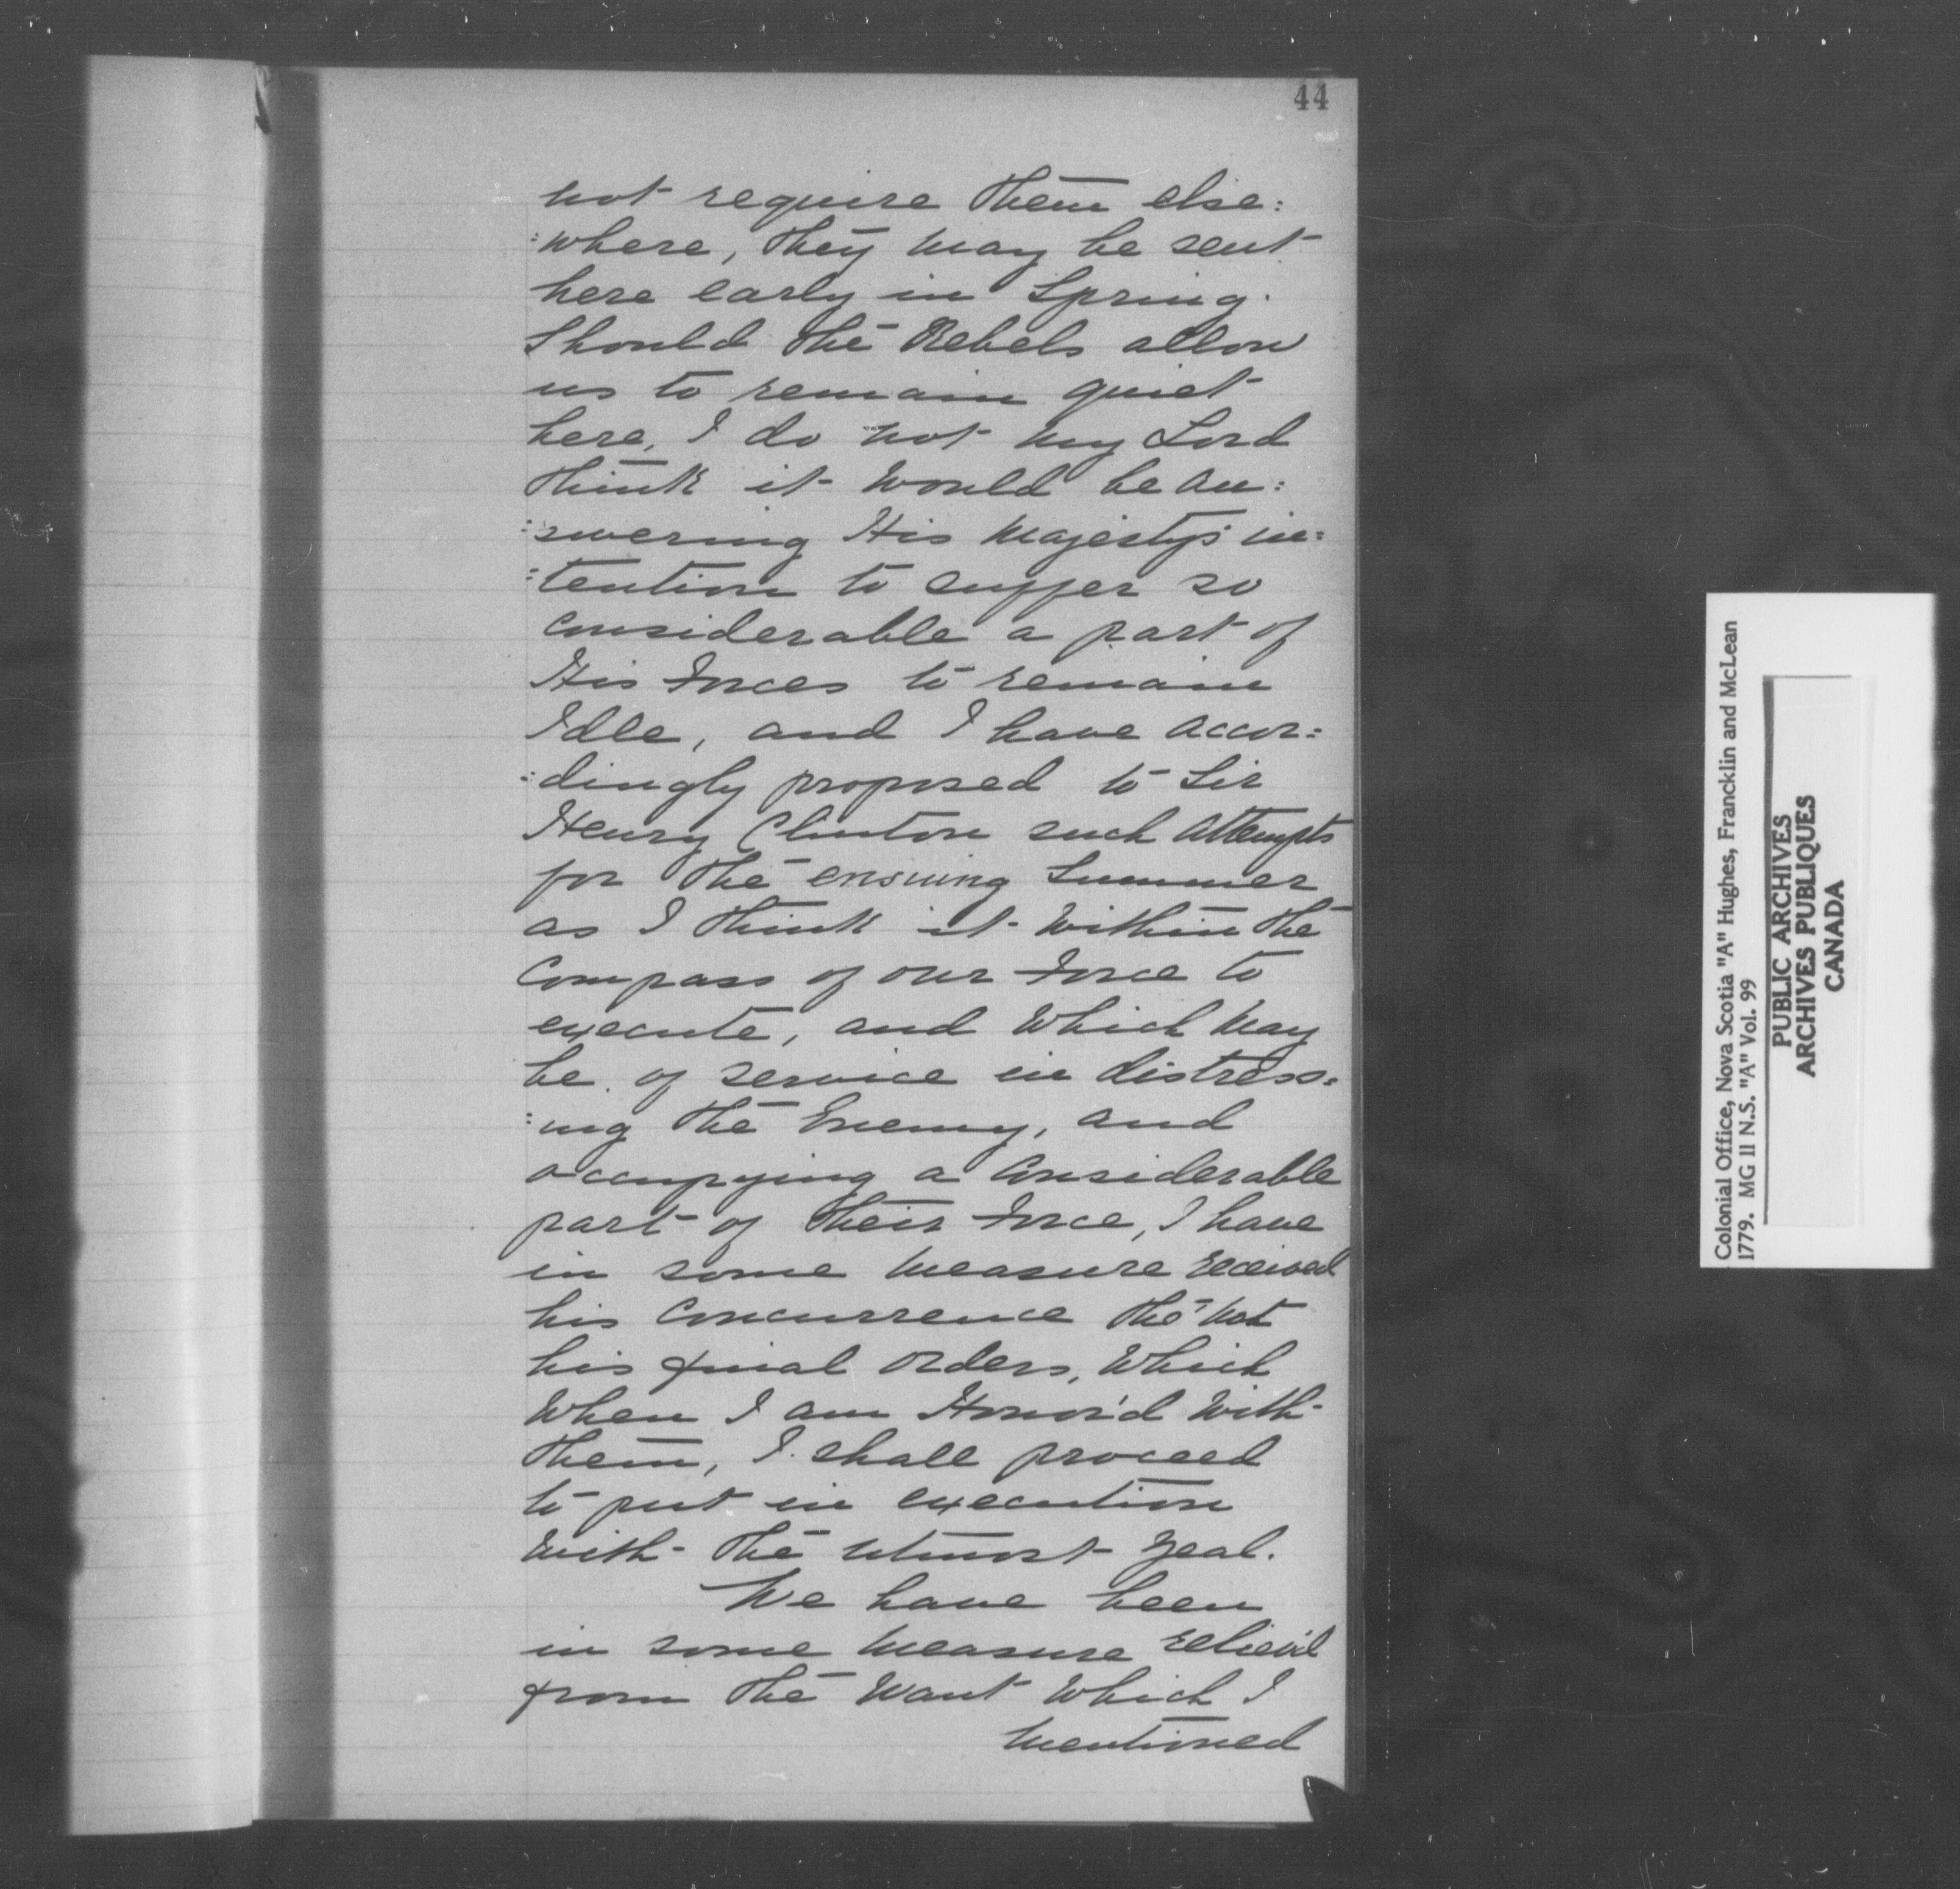 44
not require them else:
:where, they may be sent
here early in Spring.
Should the Rebels allow
us to remain quiet
here, I do not my Lord
think it would be an:
:swering His Majesty's in:
:tention to suffer so
considerable a part of
His Forces to remain
Idle, and I have accor:
:dingly proposed to Sir
Henry Clinton such attempts
for the ensuing Summer
as I think it within the
Compass of our Force to
execute, and which may
be of service in distress:
:ing the Enemy, and
occupying a Considerable
part of their Force, I have
in some measure received
his Concurrence tho' not
his final orders, which
when I am Honor'd with
them, I shall proceed
to put in execution
with the utmost zeal.
We have been
in some measure reliev'd
from the want which I
mentioned
Colonial Office, Nova Scotia "A" Hughes, Francklin and McLean
1779. MG 11 N.S. "A" Vol. 99
PUBLIC ARCHIVES
ARCHIVES PUBLIQUES
CANADA